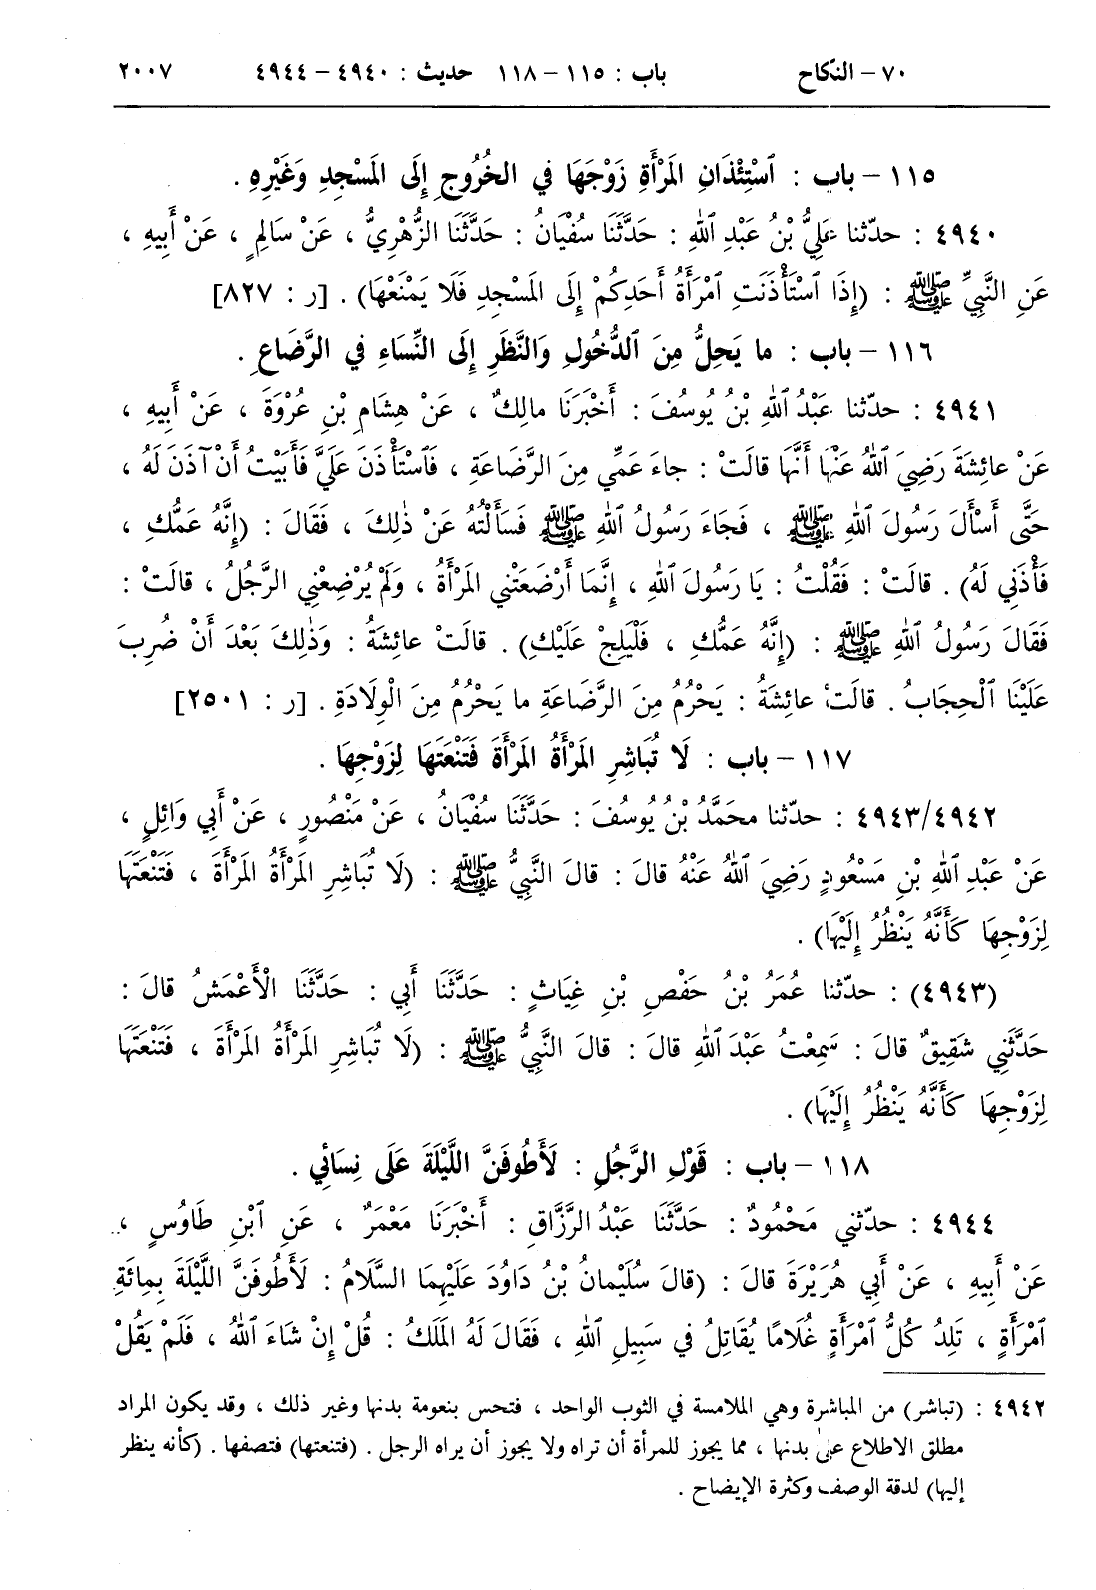 ٧٠ – النّكاح باب : ١١٥ – ١١٨ حديث : ٤٩٤٠ – ٤٩٤٤ ٢٠٠٧
١١٥ – باب : ٱسْتِئْذَانِ المَرْأَةِ زَوْجَهَا في الخُرُوجِ إِلَى المَسْجِدِ وَغَيْرِهِ .
٤٩٤٠ : حدّثنا عَلِيُّ بْنُ عَبْدِ ٱللهِ : حَدَّثَنَا سُفْيَانُ : حَدَّثَنَا الزُّهْرِيُّ ، عَنْ سَالِمٍ ، عَنْ أَبِيهِ ،
عَنِ النَّبِيِّ ﷺ : (إِذَا ٱسْتَأْذَنَتِ ٱمْرَأَةُ أَحَدِكُمْ إِلَى المَسْجِدِ فَلَا يَمْنَعْهَا) . [ر : ٨٢٧]
١١٦ – باب : ما يَحِلُّ مِنَ ٱلدُّخُولِ وَالنَّظَرِ إِلَى النِّسَاءِ في الرَّضَاعِ .
٤٩٤١ : حدّثنا عَبْدُ ٱللهِ بْنُ يُوسُفَ : أَخْبَرَنَا مالِكٌ ، عَنْ هِشَامِ بْنِ عُرْوَةَ ، عَنْ أَبِيهِ ،
عَنْ عائِشَةَ رَضِيَ ٱللهُ عَنْهَا أَنَّهَا قالَتْ : جاءَ عَمِّي مِنَ الرَّضَاعَةِ ، فَٱسْتَأْذَنَ عَلَيَّ فَأَبَيْتُ أَنْ آذَنَ لَهُ ،
حَتَّى أَسْأَلَ رَسُولَ ٱللهِ ﷺ ، فَجَاءَ رَسُولُ ٱللهِ ﷺ فَسَأَلْتُهُ عَنْ ذٰلِكَ ، فَقَالَ : (إِنَّهُ عَمُّكِ ،
فَأْذَنِي لَهُ) . قالَتْ : فَقُلْتُ : يَا رَسُولَ ٱللهِ ، إِنَّمَا أَرْضَعَتْنِي المَرْأَةُ ، وَلَمْ يُرْضِعْنِي الرَّجُلُ ، قالَتْ :
فَقَالَ رَسُولُ ٱللهِ ﷺ : (إِنَّهُ عَمُّكِ ، فَلْيَلِجْ عَلَيْكِ) . قالَتْ عائِشَةُ : وَذٰلِكَ بَعْدَ أَنْ ضُرِبَ
عَلَيْنَا ٱلْحِجَابُ . قالَتْ عائِشَةُ : يَحْرُمُ مِنَ الرَّضَاعَةِ ما يَحْرُمُ مِنَ الْوِلَادَةِ . [ر : ٢٥٠١]
١١٧ – باب : لَا تُبَاشِرِ المَرْأَةُ المَرْأَةَ فَتَنْعَتَهَا لِزَوْجِهَا .
٤٩٤٣/٤٩٤٢ : حدّثنا محَمَّدُ بْنُ يُوسُفَ : حَدَّثَنَا سُفْيَانُ ، عَنْ مَنْصُورٍ ، عَنْ أَبِي وَائِلٍ ،
عَنْ عَبْدِ ٱللهِ بْنِ مَسْعُودٍ رَضِيَ ٱللهُ عَنْهُ قالَ : قالَ النَّبِيُّ ﷺ : (لَا تُبَاشِرِ المَرْأَةُ المَرْأَةَ ، فَتَنْعَتَهَا
لِزَوْجِهَا كَأَنَّهُ يَنْظُرُ إِلَيْهَا) .
(٤٩٤٣) : حدّثنا عُمَرُ بْنُ حَفْصِ بْنِ غِيَاثٍ : حَدَّثَنَا أَبِي : حَدَّثَنَا الْأَعْمَشُ قالَ :
حَدَّثَنِي شَقِيقٌ قالَ : سَمِعْتُ عَبْدَ ٱللهِ قالَ : قالَ النَّبِيُّ ﷺ : (لَا تُبَاشِرِ المَرْأَةُ المَرْأَةَ ، فَتَنْعَتَهَا
لِزَوْجِهَا كَأَنَّهُ يَنْظُرُ إِلَيْهَا) .
١١٨ – باب : قَوْلِ الرَّجُلِ : لَأَطُوفَنَّ اللَّيْلَةَ عَلَى نِسَائِي .
٤٩٤٤ : حدّثني مَحْمُودٌ : حَدَّثَنَا عَبْدُ الرَّزَّاقِ : أَخْبَرَنَا مَعْمَرٌ ، عَنِ ٱبْنِ طَاوُسٍ ،
عَنْ أَبِيهِ ، عَنْ أَبِي هُرَيْرَةَ قالَ : (قالَ سُلَيْمانُ بْنُ دَاوُدَ عَلَيْهِمَا السَّلَامُ : لَأَطُوفَنَّ اللَّيْلَةَ بِمِائَةِ
ٱمْرَأَةٍ ، تَلِدُ كُلُّ ٱمْرَأَةٍ غُلَامًا يُقَاتِلُ في سَبِيلِ ٱللهِ ، فَقَالَ لَهُ المَلَكُ : قُلْ إِنْ شَاءَ ٱللهُ ، فَلَمْ يَقُلْ
٤٩٤٢ : (تباشر) من المباشرة وهي الملامسة في الثوب الواحد ، فتحس بنعومة بدنها وغير ذلك ، وقد يكون المراد
مطلق الاطلاع على بدنها ، مما يجوز للمرأة أن تراه ولا يجوز أن يراه الرجل . (فتنعتها) فتصفها . (كأنه ينظر
إليها) لدقة الوصف وكثرة الإيضاح .